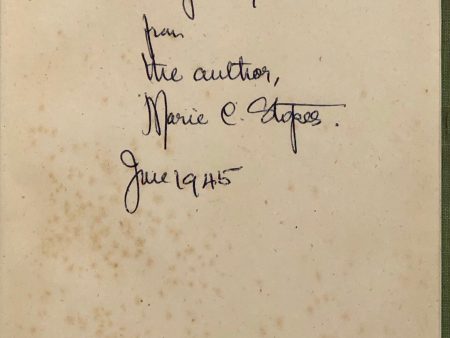 from
the author,
Marie C. Stopes.
June 1945